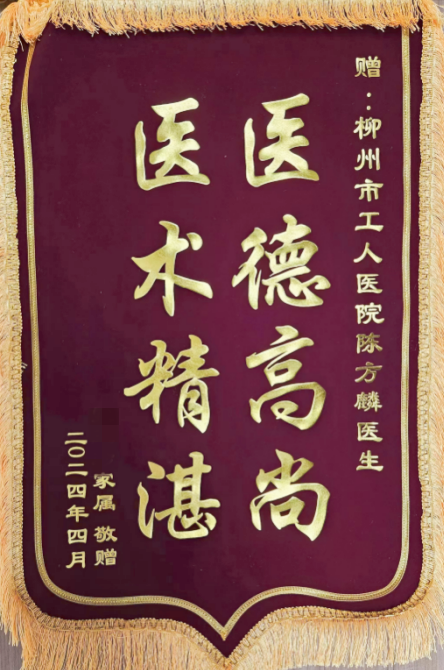 赠：柳州市工人医院陈方麟医生
医德高尚
医术精湛
家属 敬赠
二〇二四年四月